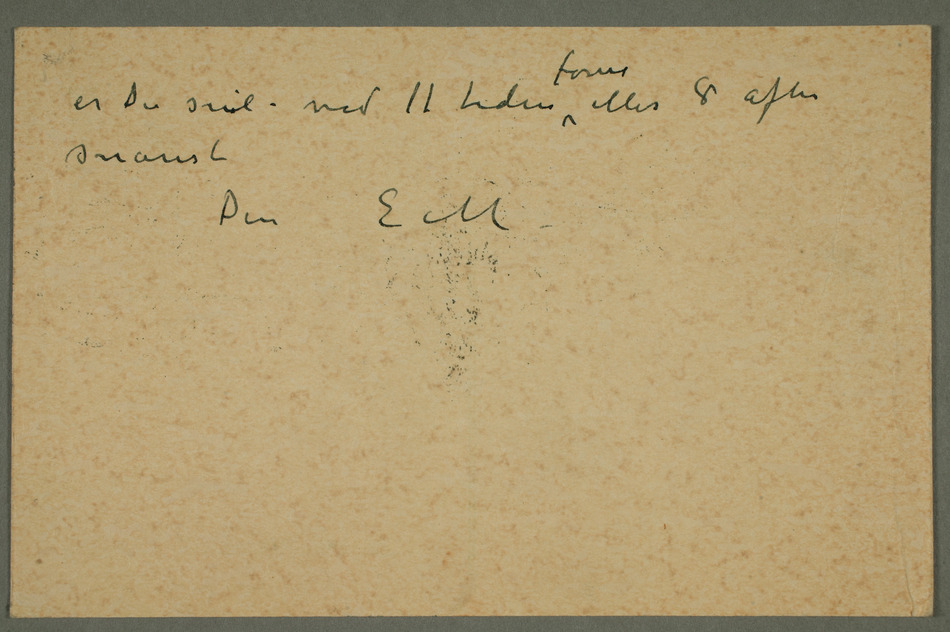 er Du snil – ved 11 tiden form eller 8 aften
snarest
Din E M